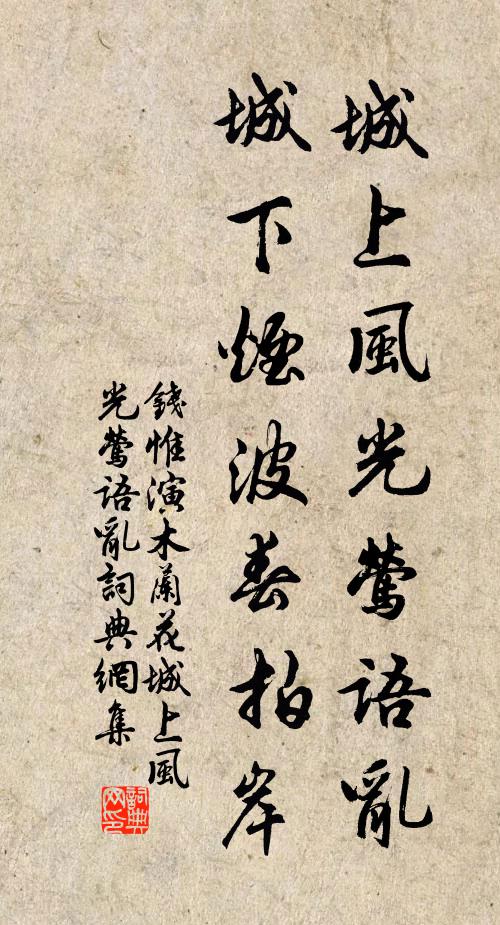 城上風光鶯語亂
城下煙波春拍岸
錢惟演木蘭花城上風
光鶯語亂詞典網集
詞典網印